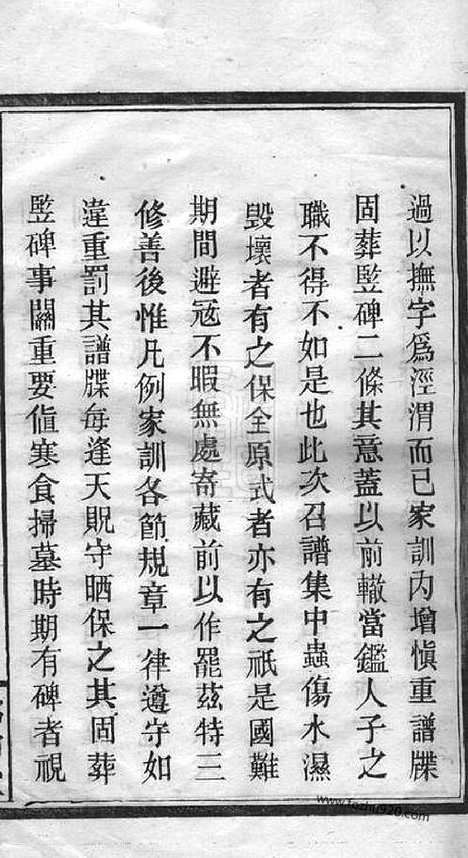 過以撫字為涇渭而已家訓內增慎重譜牒
固葬竪碑二條其意蓋以前轍當鑑人子之
職不得不如是也此次召譜集中蟲傷水濕
毀壞者有之保全原式者亦有之祇是國難
期間避冦不暇無處寄藏前以作罷茲特三
修善後惟凡例家訓各節規章一律遵守如
違重罰其譜牒每逢天貺守晒保之其固葬
竪碑事關重要值寒食掃墓時期有碑者視